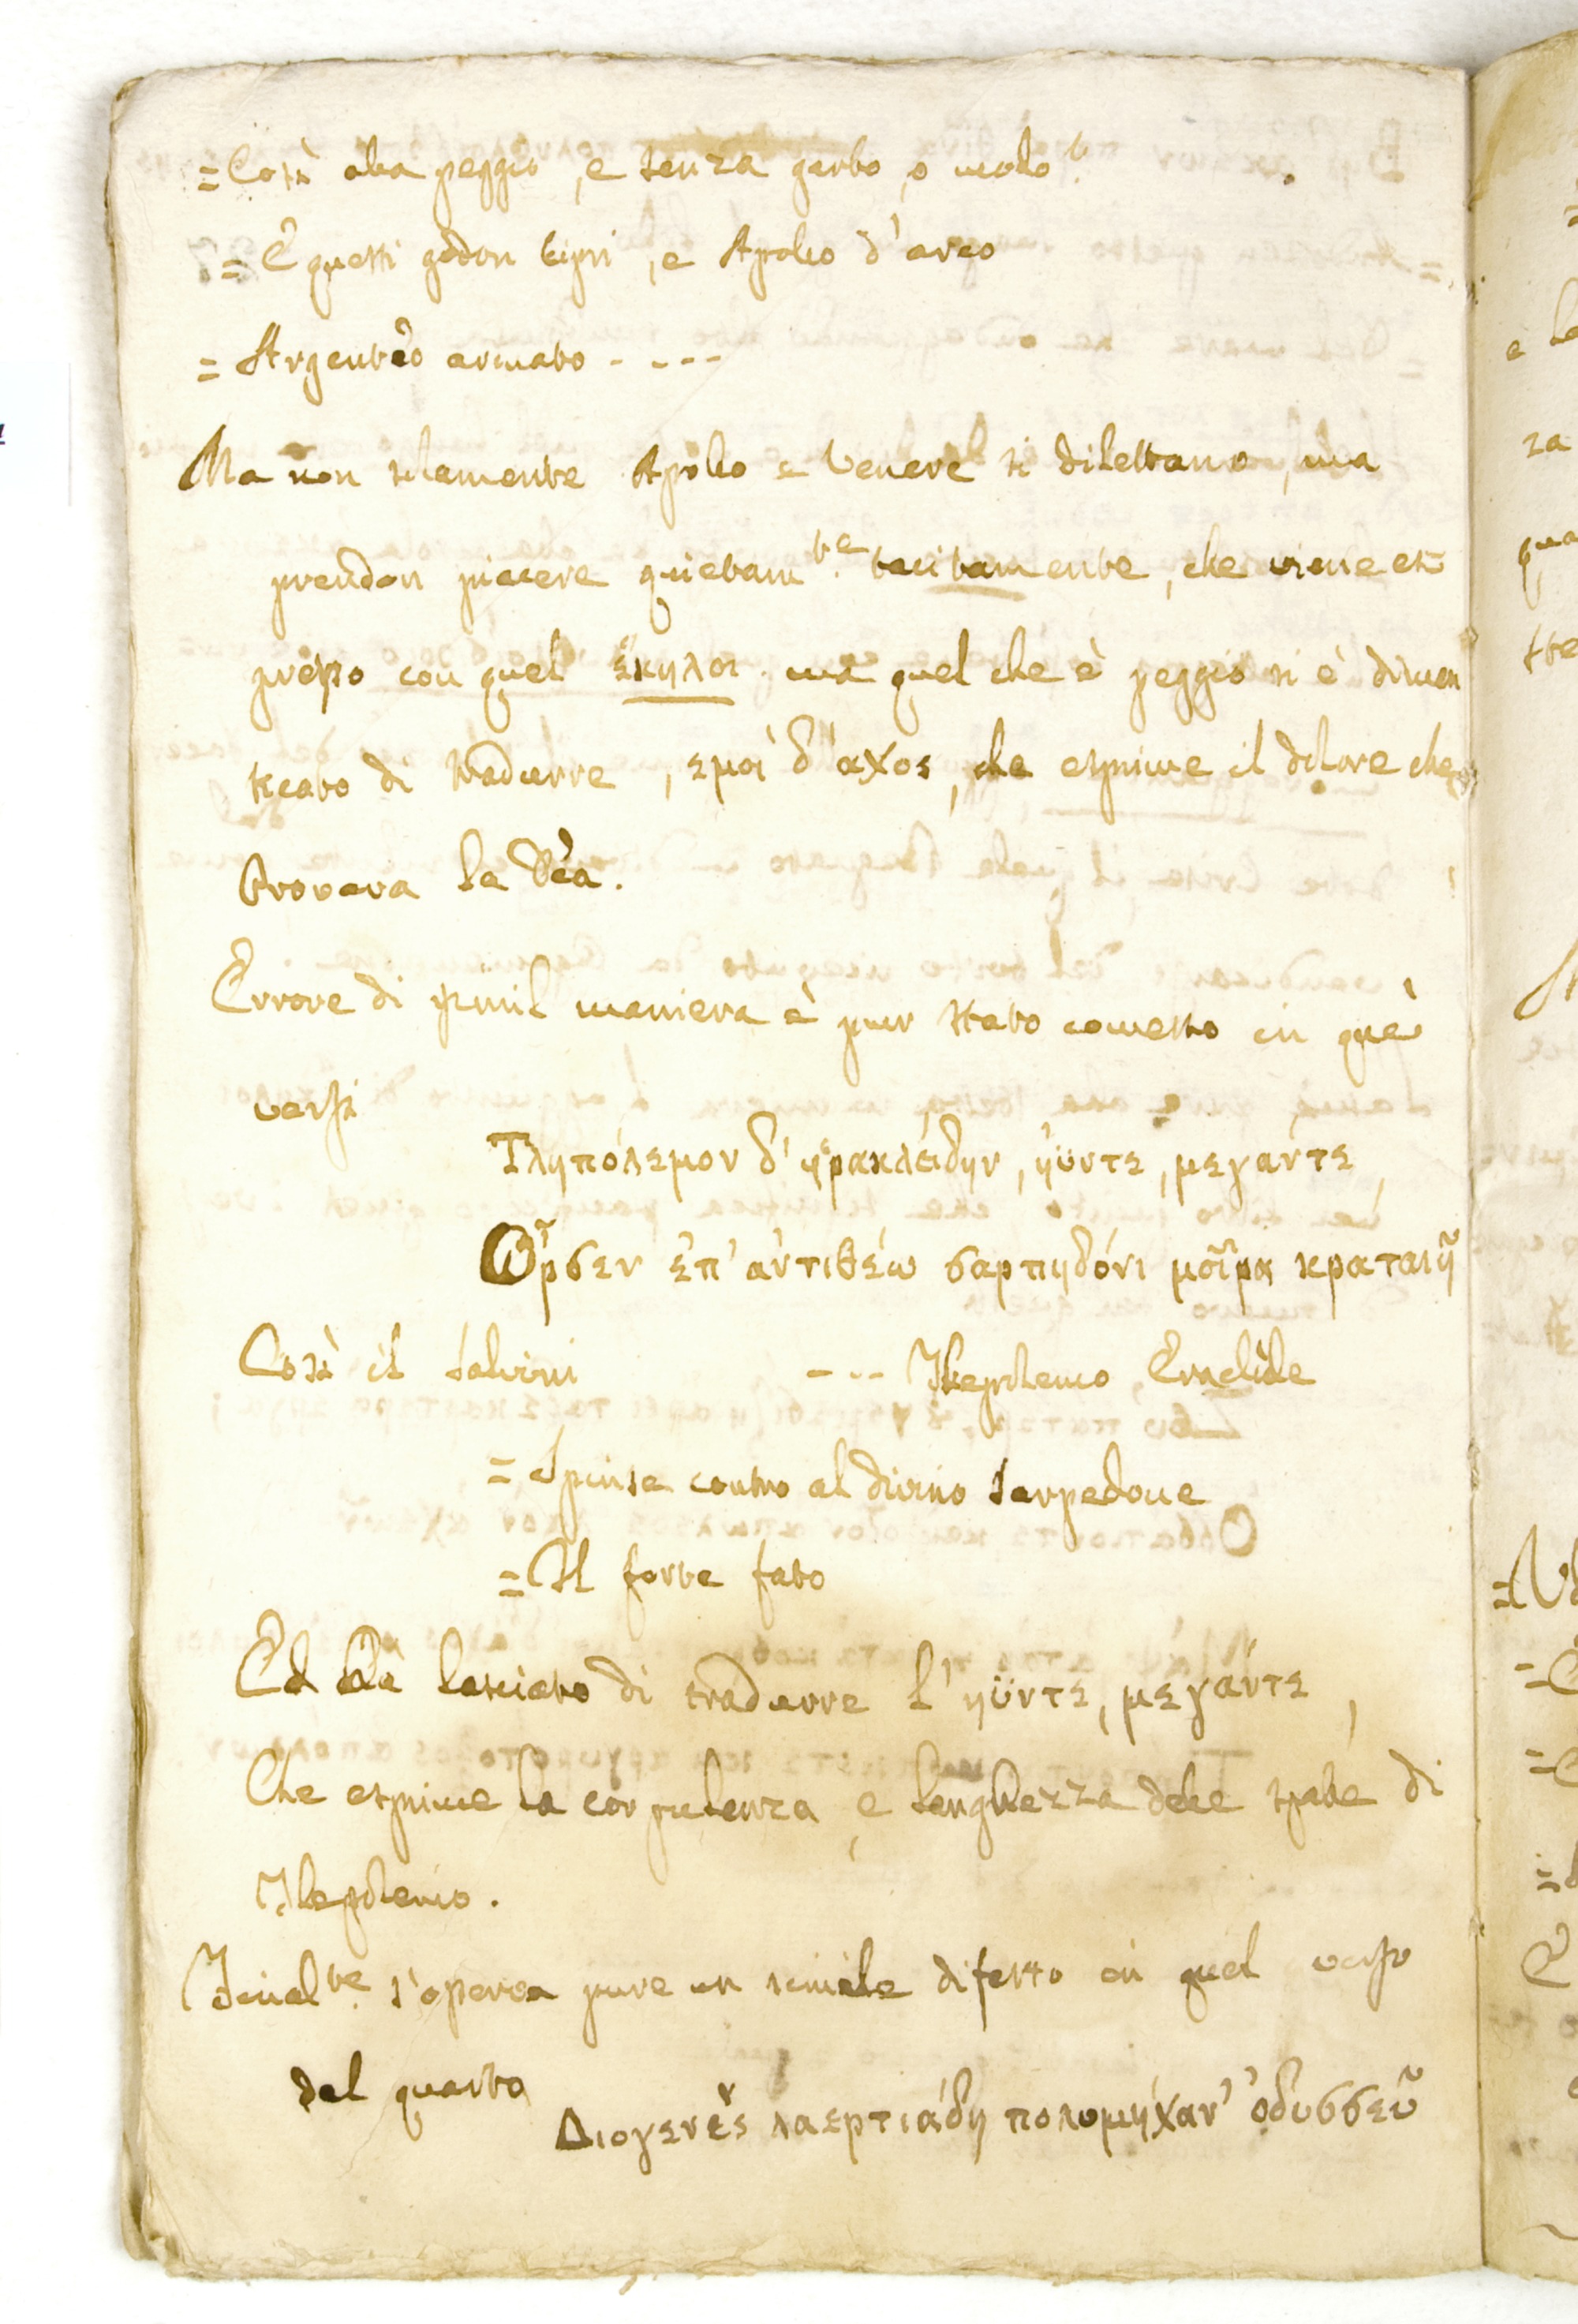 = Così alla peggio, e senza garbo, o modo
= E questi godon Cipri, e Apollo d'arco
= Argenteo armato - - - -
Ma non solamente Apollo e Venere si dilettano, ma
prendon piacere quietam.te tacitamente, che viene es=
presso con quel ἕκηλοι. ma quel che è peggio si è dimen
ticato di tradurre, εμοὶ δ'άχος, che esprime il dolore che
provava la Dea.
Errore di simil maniera è pur stato comesso in que'
versi
Τληπόλεμον δ' ηρακλείδην, ἠύντε, μεγαντε,
Ὦρσεν ἐπ' αντιθέω σαρπηδόνι μοῖρα κραταιῆ
Così il Salvini - - - Tlepolemo, Eraclide
= Spinse contro al divino Sarpedone
= Il forte fato
Ed ha lasciato di tradurre l' ηύντε, μεγάντε,
Che esprime la corpulenza, e lunghezza delle spalle di
Tlepolemo.
Final.te s'osserva pure un simile difetto in quel verso
del quarto
Διογενὲς λαερτιάδη πολυμήχαν' ὀδυσσεῦ